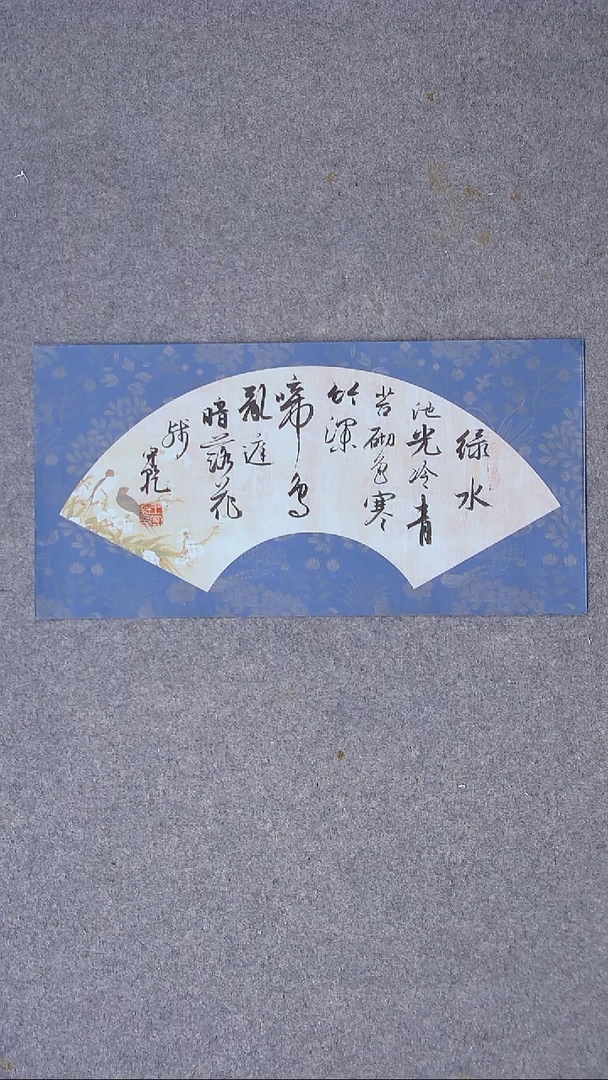 绿水
池光冷青
苔砌色寒
竹深
啼鸟
亂庭
暗落花
残